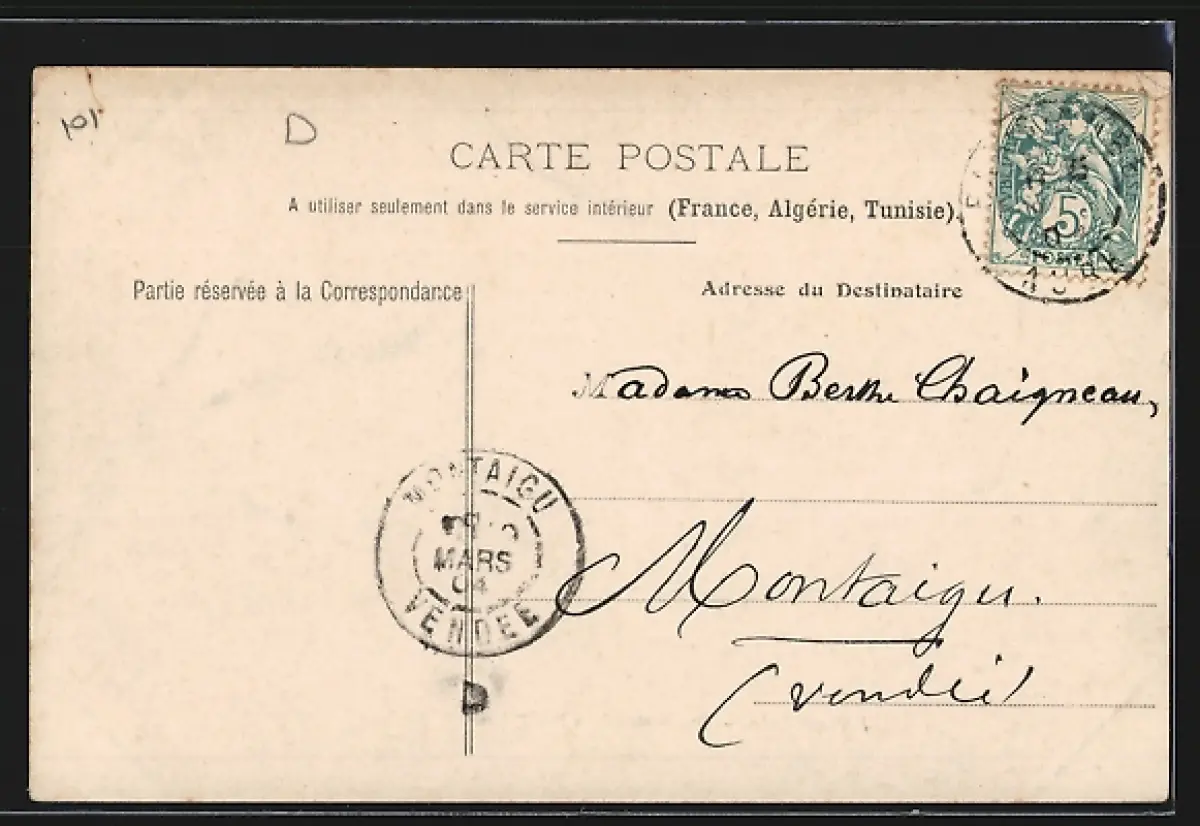 101
D
CARTE POSTALE
A utiliser seulement dans le service intérieur (France, Algérie, Tunisie).
5c
Partie réservée à la Correspondance
Adresse du Destinataire
Madame Berthe Chaigneau,
MONTAIGU
MARS
04
VENDÉE
Montaigu.
(vendée)
D